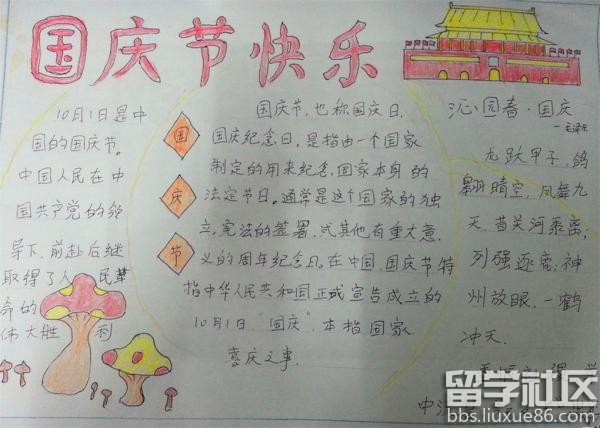 国庆节快乐
10月1日是中
国的国庆节。
中国人民在中
国共产党的领
导下,前赴后继
取得了人民革
命的
伟大胜利
国
庆
节
国庆节,也称国庆日、
国庆纪念日,是指由一个国家
制定的用来纪念国家本身的
法定节日。通常是这个国家的独
立、宪法的签署、或其他有重大意
义的周年纪念日。在中国,国庆节特
指中华人民共和国正式宣告成立的
10月1日.国庆”本指国家
喜庆之事.
沁园春·国庆
龙跃甲子,鸽
翱晴空,凤舞九
天.昔关河乖离,
列强逐鹿;神
州放眼,一鹤
冲天.
留学社区
bbs.liuxue86.com